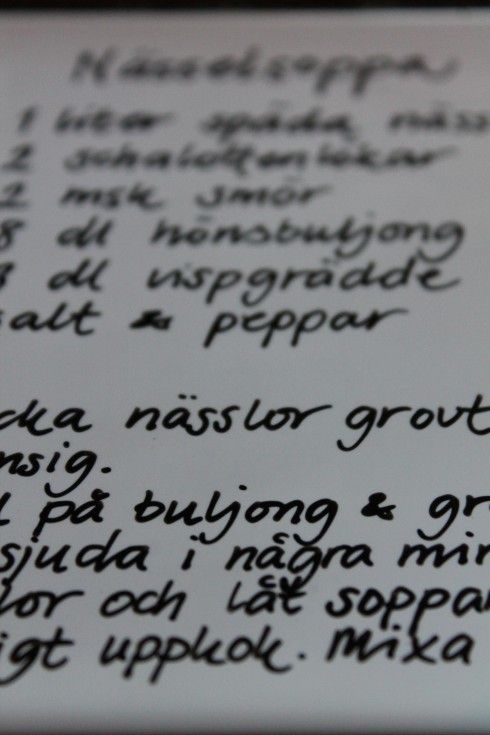 Nässelsoppa
1 liter späda näss
2 schalottenlökar
2 msk smör
8 dl hönsbuljong
3 dl vispgrädde
salt & peppar
cka nässlor grovt
nsig.
l på buljong & gr
sjuda i några min
lor och låt soppan
igt uppkok. Mixa